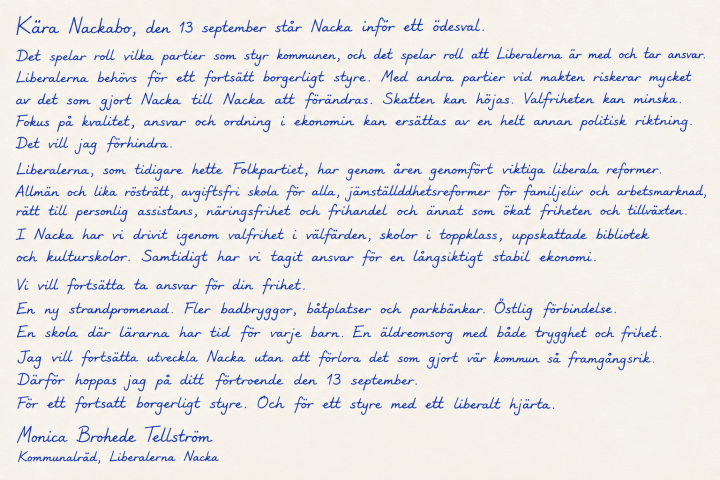 Kära Nackabo, den 13 september står Nacka inför ett ödesval.
Det spelar roll vilka partier som styr kommunen, och det spelar roll att Liberalerna är med och tar ansvar.
Liberalerna behövs för ett fortsätt borgerligt styre. Med andra partier vid makten riskerar mycket
av det som gjort Nacka till Nacka att förändras. Skatten kan höjas. Valfriheten kan minska.
Fokus på kvalitet, ansvar och ordning i ekonomin kan ersättas av en helt annan politisk riktning.
Det vill jag förhindra.
Liberalerna, som tidigare hette Folkpartiet, har genom åren genomfört viktiga liberala reformer.
Allmän och lika rösträtt, avgiftsfri skola för alla, jämställddhetsreformer för familjeliv och arbetsmarknad,
rätt till personlig assistans, näringsfrihet och frihandel och ännat som ökat friheten och tillväxten.
I Nacka har vi drivit igenom valfrihet i välfärden, skolor i toppklass, uppskattade bibliotek
och kulturskolor. Samtidigt har vi tagit ansvar för en långsiktigt stabil ekonomi.
Vi vill fortsätta ta ansvar för din frihet.
En ny strandpromenad. Fler badbryggor, båtplatser och parkbänkar. Östlig förbindelse.
En skola där lärarna har tid för varje barn. En äldreomsorg med både trygghet och frihet.
Jag vill fortsätta utveckla Nacka utan att förlora det som gjort vår kommun så framgångsrik.
Därför hoppas jag på ditt förtroende den 13 september.
För ett fortsatt borgerligt styre. Och för ett styre med ett liberalt hjärta.
Monica Brohede Tellström
Kommunalråd, Liberalerna Nacka